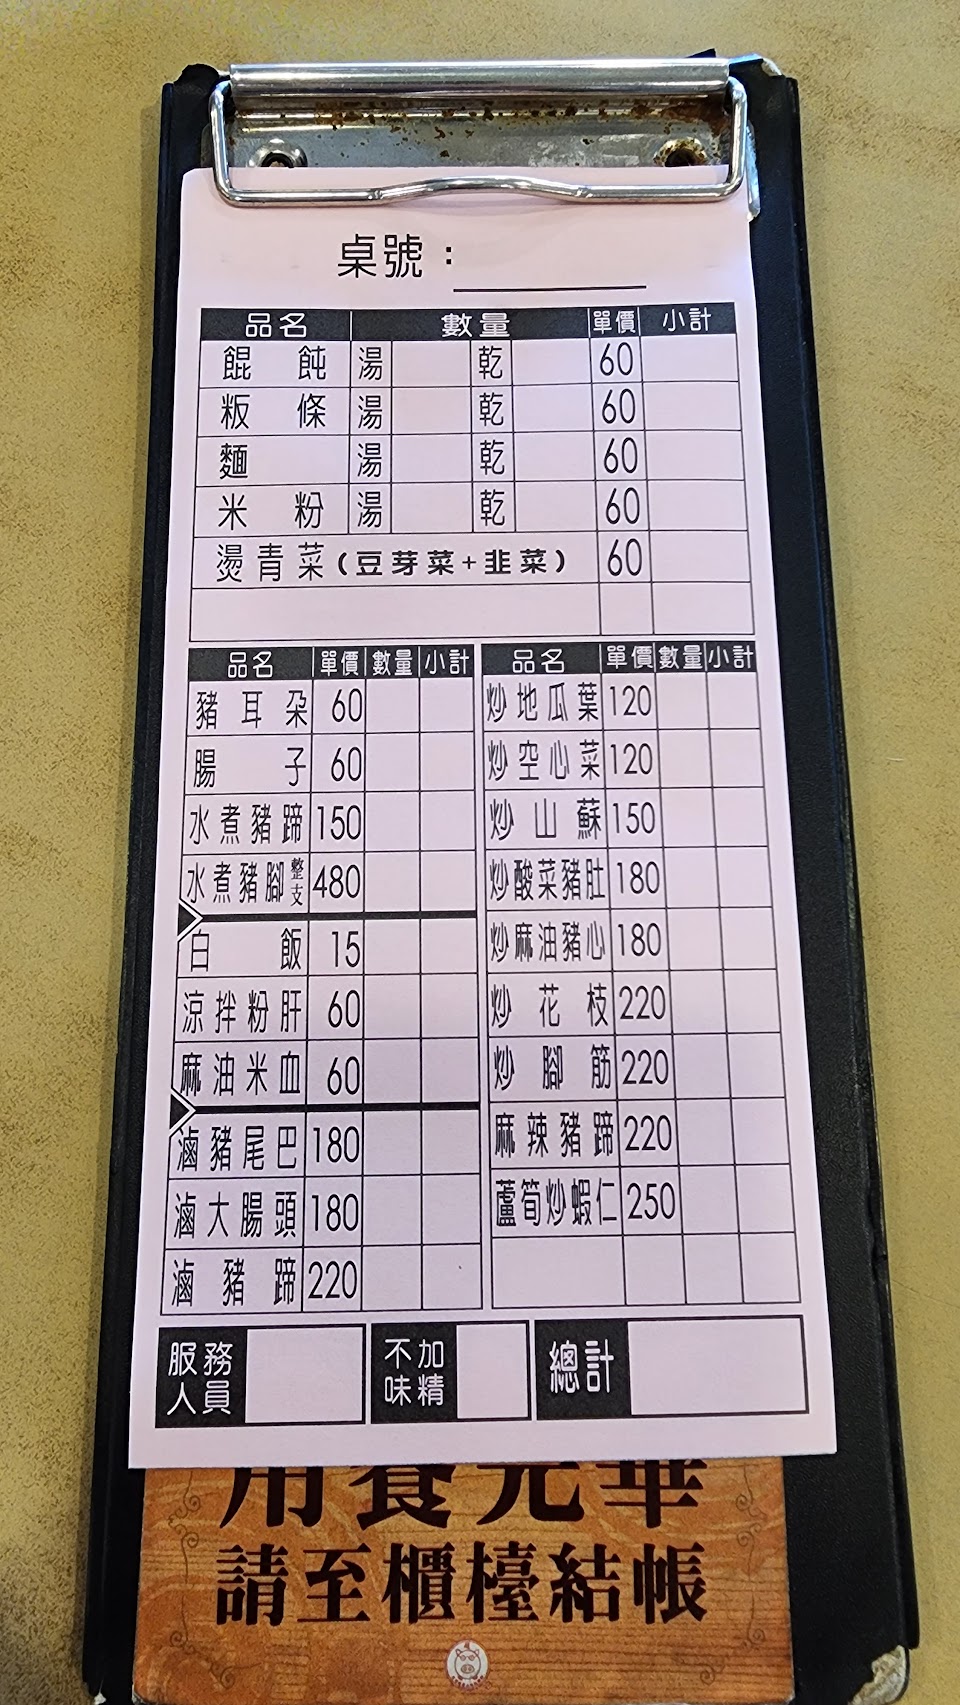 桌號：
品名 數量 單價 小計
餛飩 湯 乾 60
粄條 湯 乾 60
麵 湯 乾 60
米粉 湯 乾 60
燙青菜(豆芽菜+韭菜) 60
品名 單價 數量 小計
豬耳朵 60
腸子 60
水煮豬蹄 150
水煮豬腳整支 480
白飯 15
涼拌粉肝 60
麻油米血 60
滷豬尾巴 180
滷大腸頭 180
滷豬蹄 220
品名 單價 數量 小計
炒地瓜葉 120
炒空心菜 120
炒山蘇 150
炒酸菜豬肚 180
炒麻油豬心 180
炒花枝 220
炒腳筋 220
麻辣豬蹄 220
蘆筍炒蝦仁 250
服務人員 不加味精 總計
用餐完畢
請至櫃檯結帳